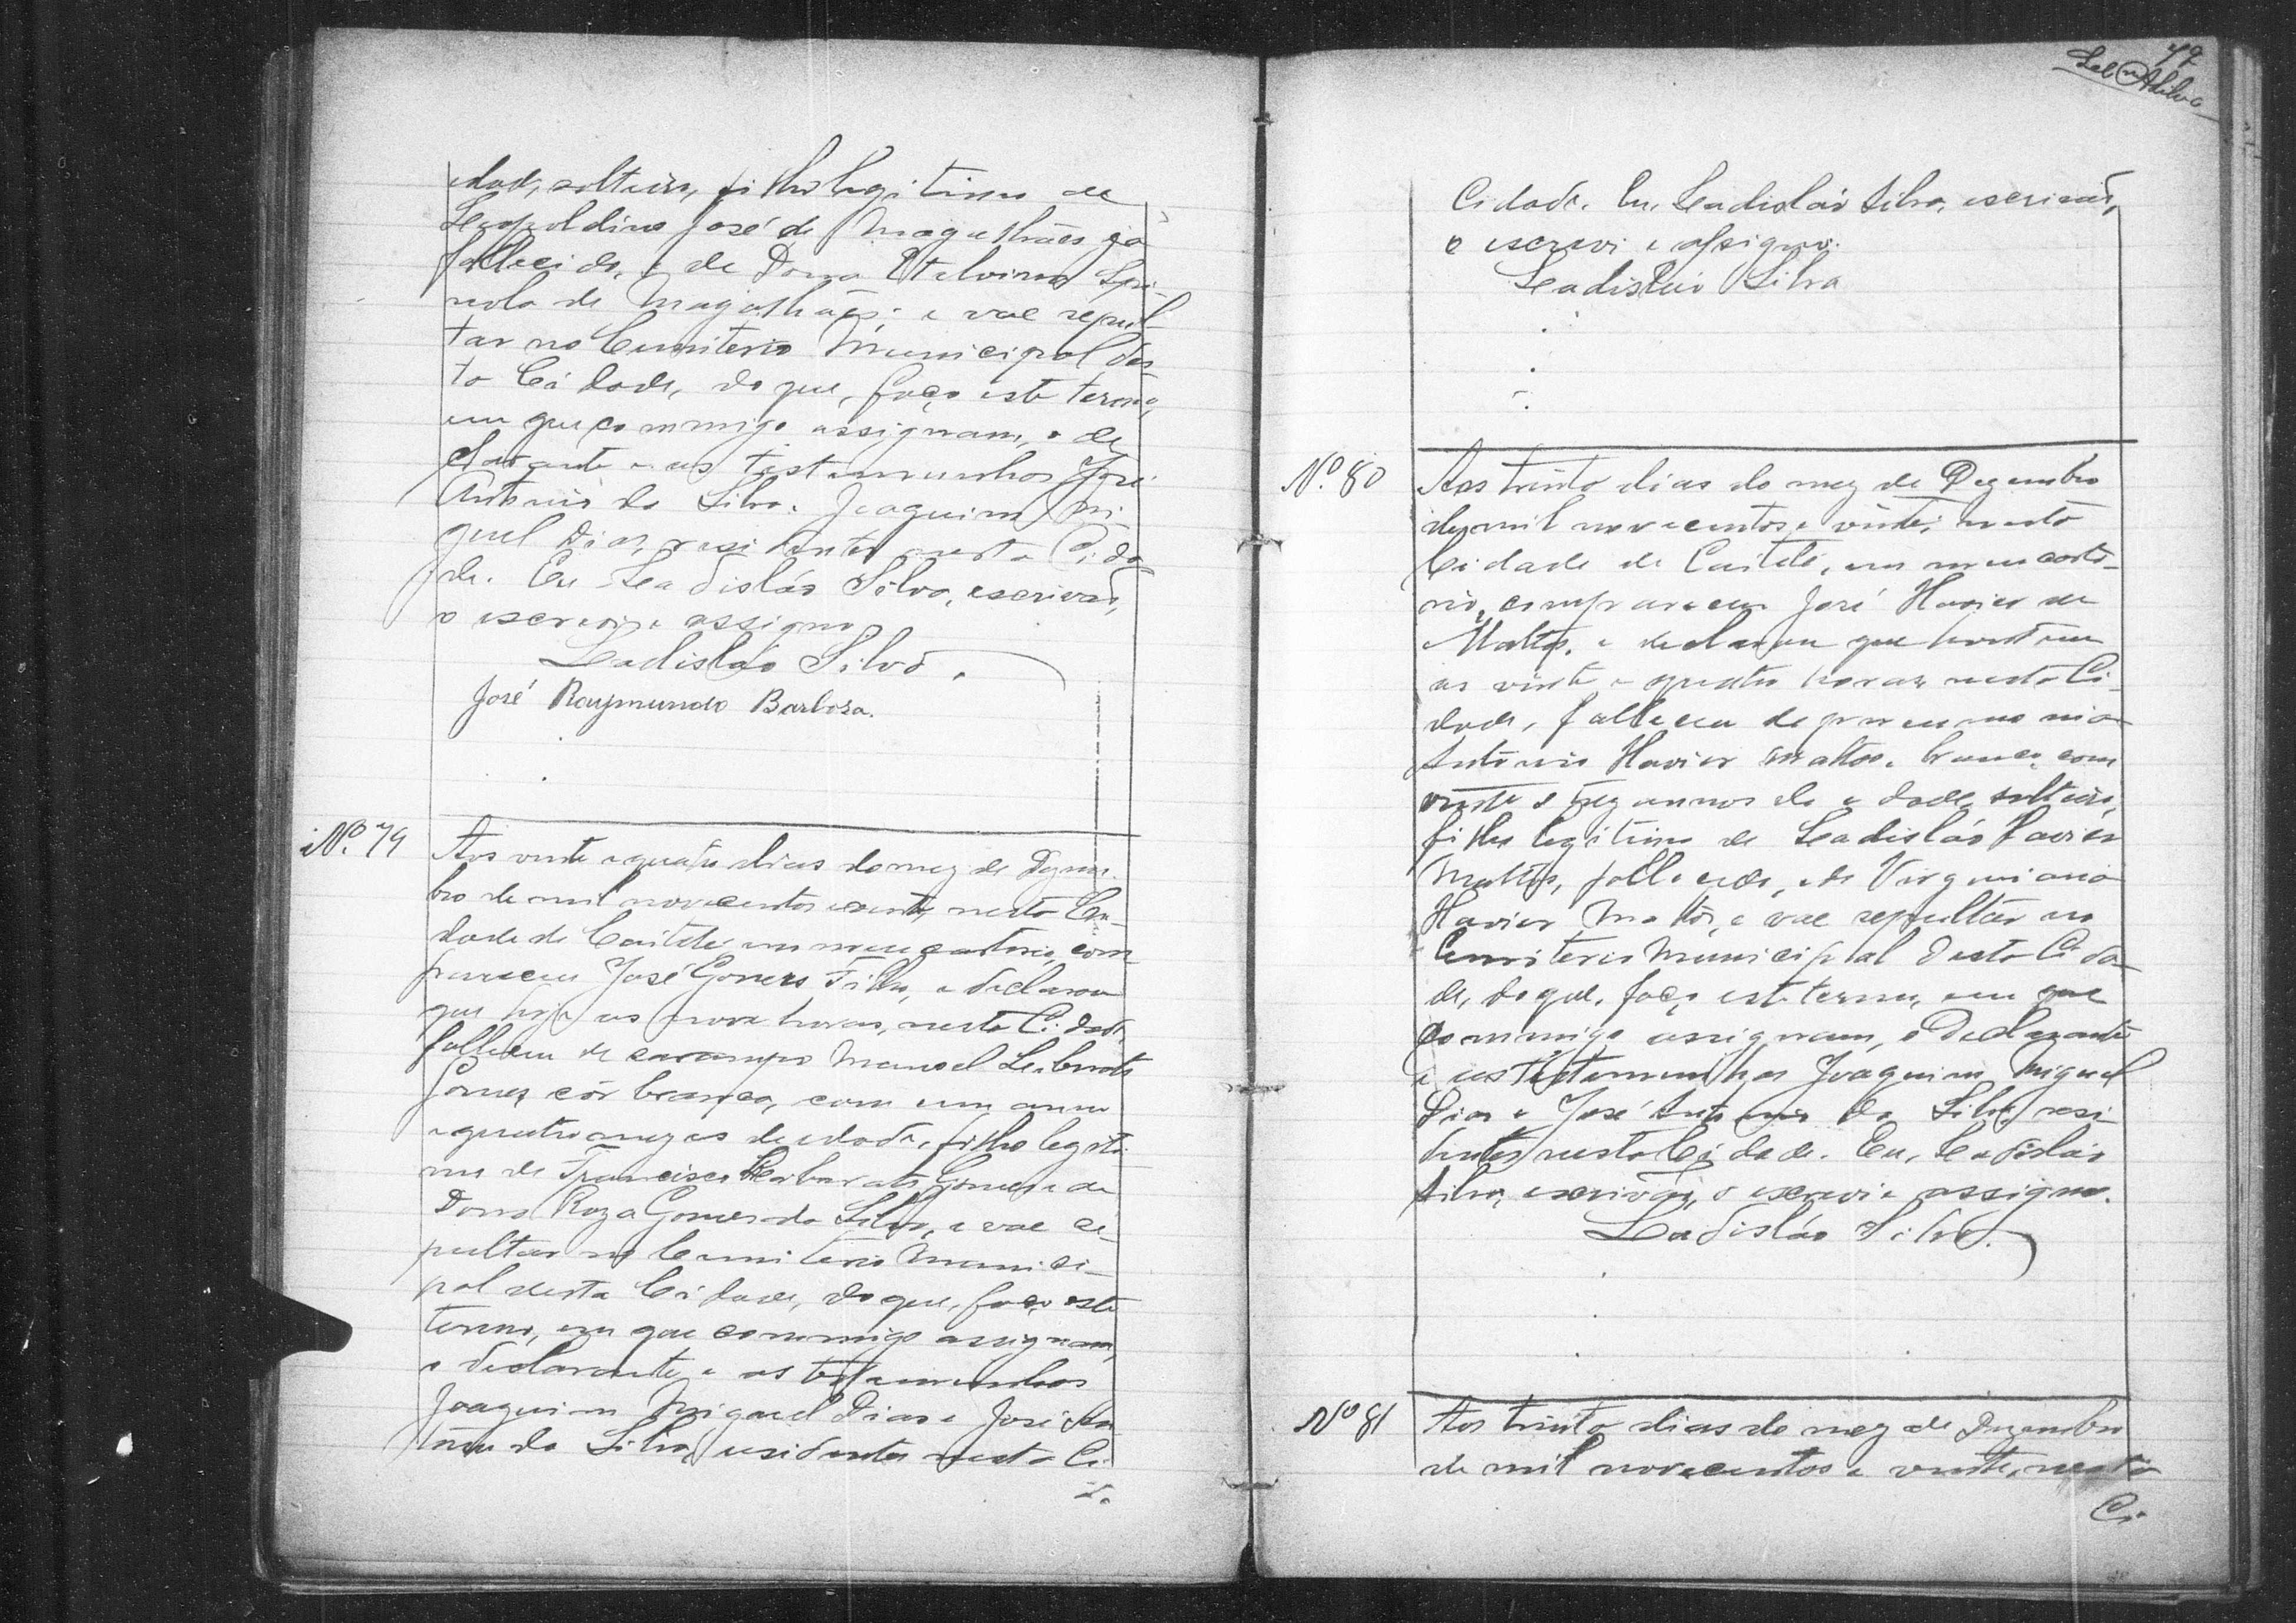 edade, solteiro, filho legitimo de
Leopoldino José de Magalhães já
fallecido, e de Dona Etelvina Spi-
nola de Magalhães; e vae sepul-
tar no Cemiterio Municipal des-
ta Cidade, do que, faço este termo,
em que commigo assignam, o de
clarante e as testemunhas José
Antonio da Silva. Joaquim Mi-
guel Dias, residentes nesta Cida-
de. Eu Ladisláo Silva, escrivão,
o escrevi e assigno
Ladisláo Silva.
José Raymundo Barbosa.
Nº. 79
Aos vinte e quatro dias do mez de Dezem-
bro de mil novecentos e vinte, nesta Ci-
dade de Caiteté em meu cartorio, com-
pareceu José Gomes Filho, e declarou
que hoje as nove horas, nesta Cidade,
falleceu de sarampo Manoel
Gomes, côr branca, com um anno
e quatro mezes de edade, filho legiti-
mo de Francisco Gomes e de
Dona Roza Gomes da Silva, e vae se-
pultar no Cemiterio Munici-
pal desta Cidade, do que, faço este
termo, em que commigo assignam,
o declarante e as testemunhas
Joaquim Miguel Dias e José An-
tonio da Silva, residentes nesta Ci-
da
79
Cidade. Eu, Ladisláo Silva, escrivão,
o escrevi e assigno.
Ladisláo Silva
Nº. 80
Aos trinta dias do mez de Dezembro
de mil novecentos e vinte, nesta
Cidade de Caiteté, em meu carto-
rio, compareceu José Havier de
Mattos, e declarou que hontem
as vinte e quatro horas nesta Ci-
dade, falleceu de pneumonia
Antonio Havier Mattos, branco, com
vinte e trez annos de edade, solteiro,
filho legitimo de Ladisláo Havier
Mattos, fallecido, e de Virginiana
Havier Mattos, e vae sepultar no
Cemiterio Municipal desta Cida-
de, do que, faço este termo, em que
commigo assignam, o declarante
e as testemunhas Joaquim Miguel
Dias e José Antonio da Silva, resi-
dentes nesta Cidade. Eu, Ladisláo
Silva, escrivão, o escrevi e assigno.
Ladisláo Silva.
Nº 81
Aos trinta dias do mez de Dezembro
de mil novecentos e vinte, nesta
Ci-